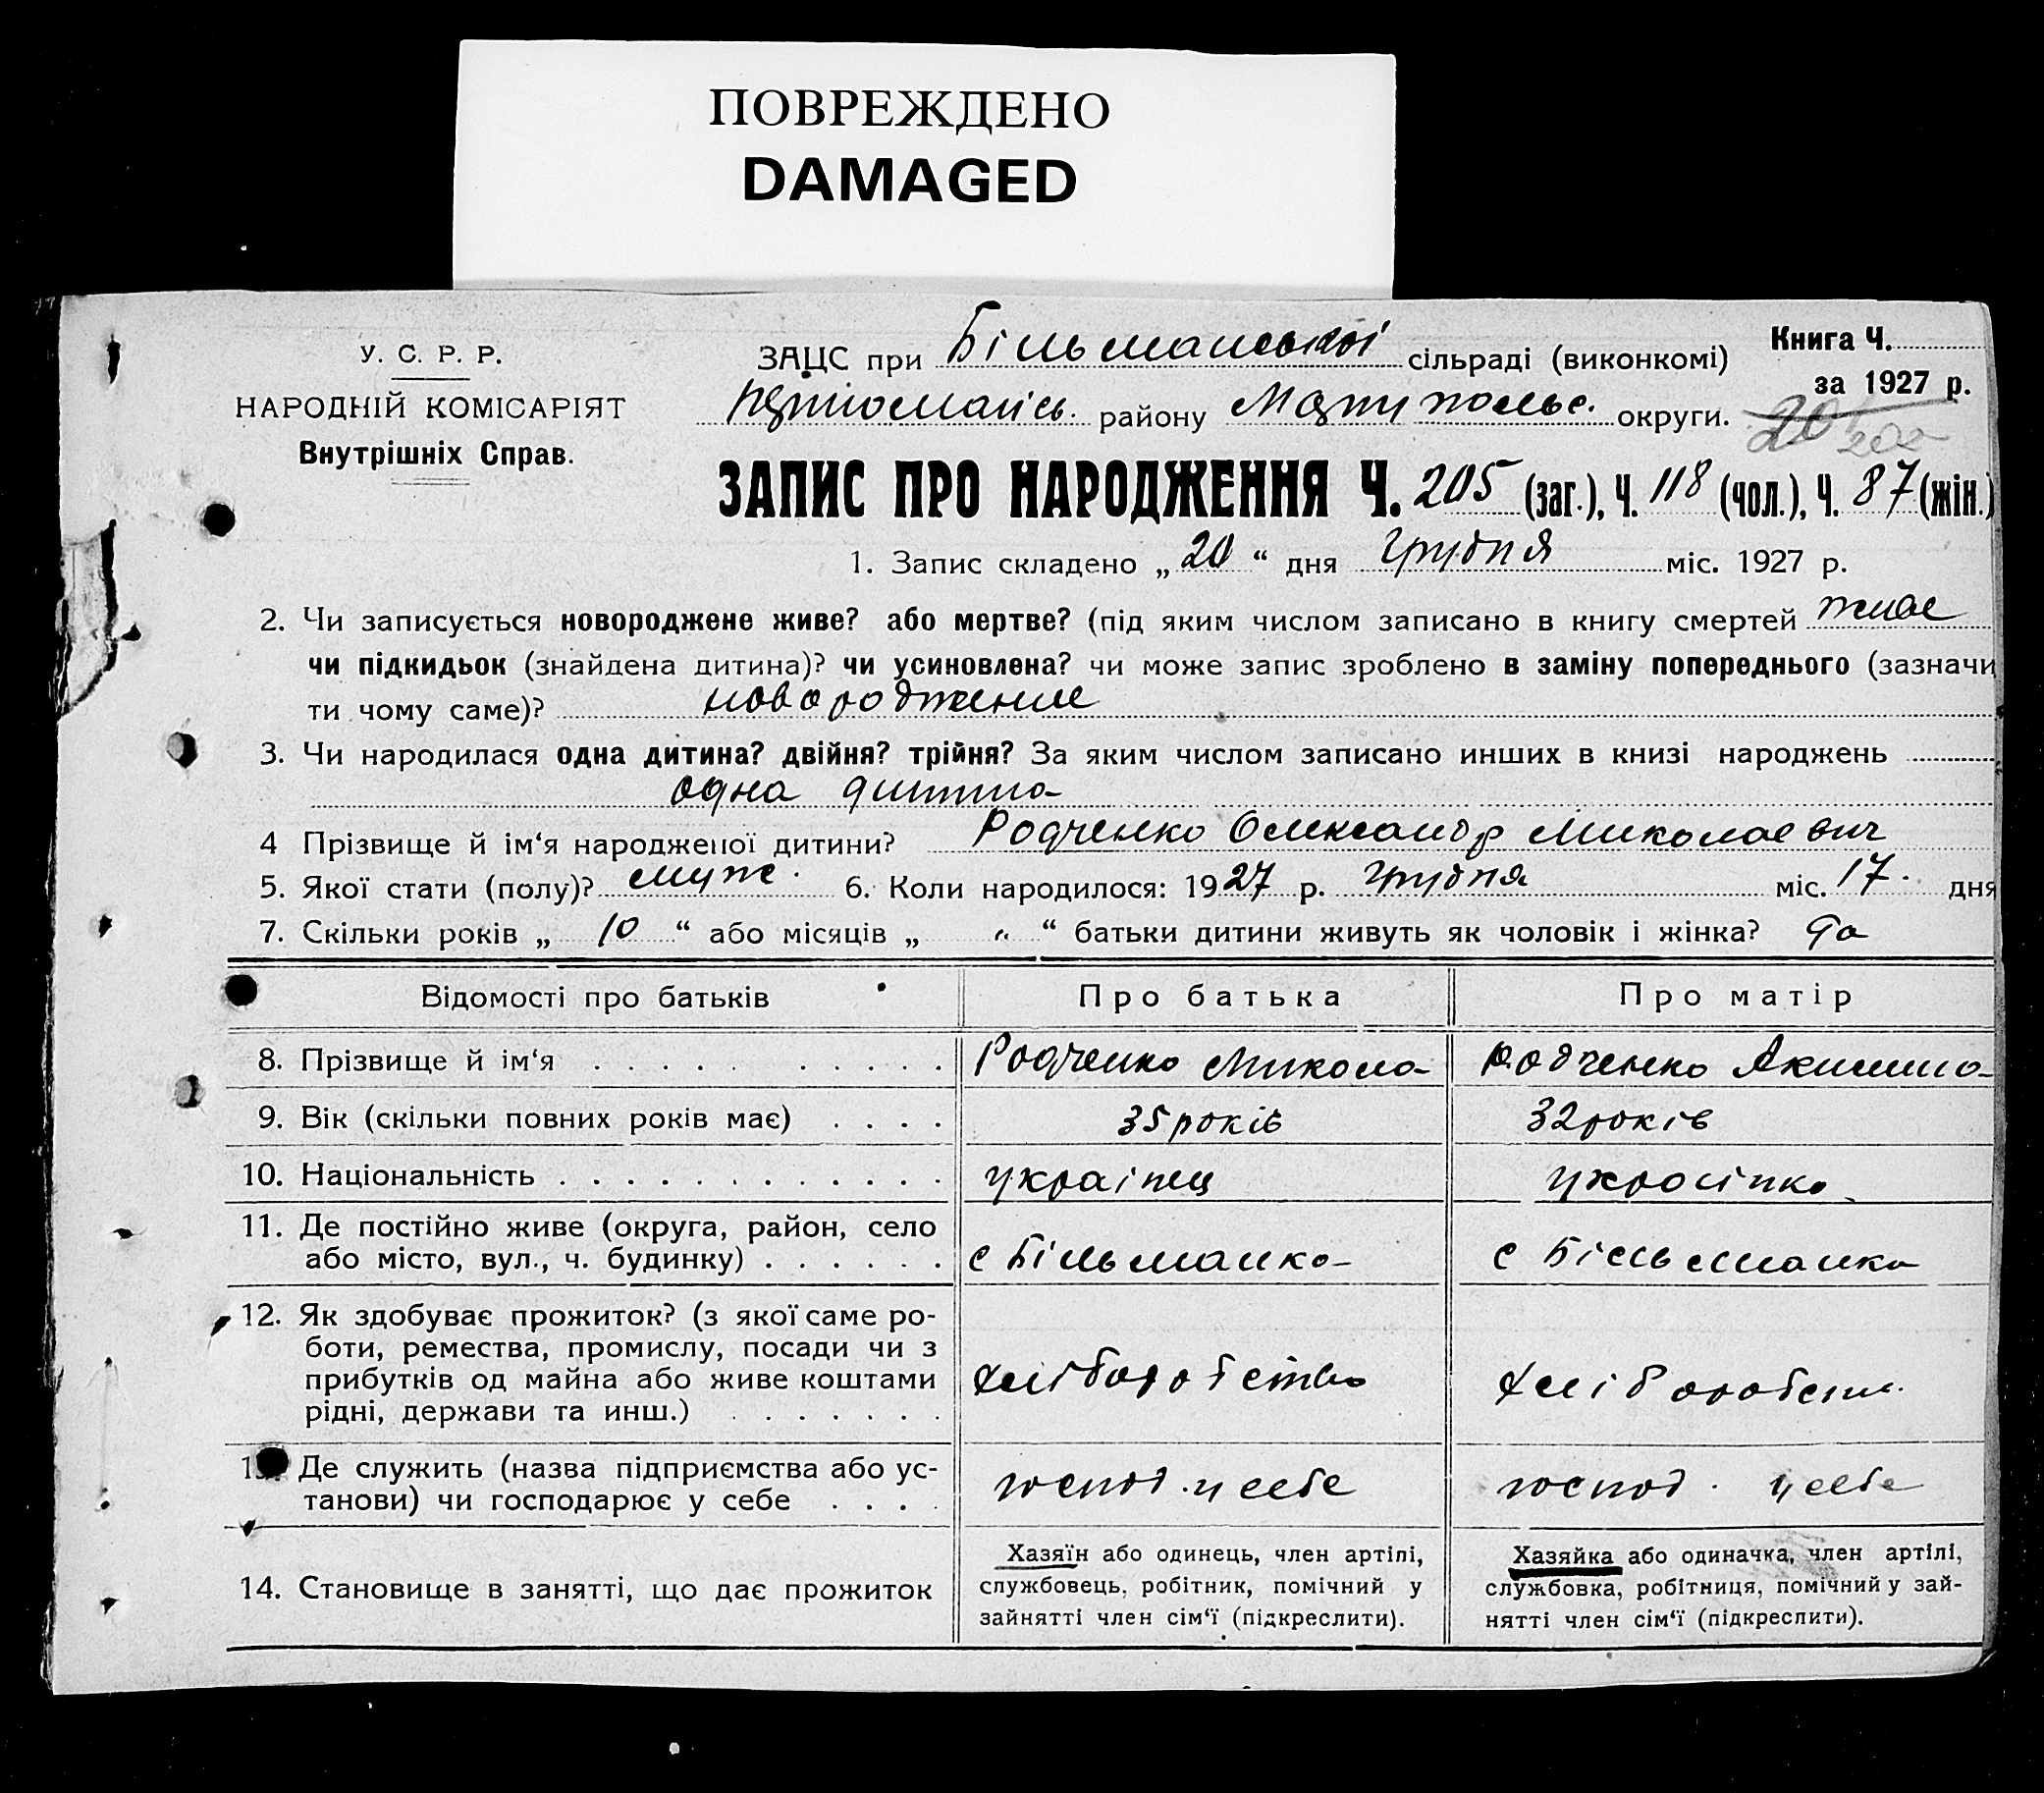 ПОВРЕЖДЕНО
DAMAGED
У. С. Р. Р.
НАРОДНІЙ КОМІСАРІЯТ
Внутрішніх Справ.
ЗАЦС при Більманській сільраді (виконкомі)
Книга Ч.
за 1927 р.
району Маріупольс. округи.
202
ЗАПИС ПРО НАРОДЖЕННЯ Ч. 205 (заг.), Ч. 118 (чол.), Ч. 87 (жін.)
1. Запис складено „ 20 “ дня Грудня міс. 1927 р.
2. Чи записується новороджене живе? або мертве? (під яким числом записано в книгу смертей живе
чи підкидьок (знайдена дитина)? чи усиновлена? чи може запис зроблено в заміну попереднього (зазначи
ти чому саме)? новородження
3. Чи народилася одна дитина? двійня? трійня? За яким числом записано инших в книзі народжень
одна дитина
4 Прізвище й ім‘я народженої дитини? Родченко Олександр Миколаевич
5. Якої стати (полу)? муж. 6. Коли народилося: 1927 р. Грудня міс. 17. дня
7. Скільки років „ 10 “ або місяців „ " “ батьки дитини живуть як чоловік і жінка? да
Відомості про батьків Про батька Про матір
8. Прізвище й ім‘я Родченко Микола Родченко Акилина
9. Вік (скільки повних років має) 35 років 32 років
10. Національність українец українка
11. Де постійно живе (округа, район, село
або місто, вул., ч. будинку) с Більманка с Більманка
12. Як здобуває прожиток? (з якої саме ро-
боти, ремества, промислу, посади чи з
прибутків од майна або живе коштами
рідні, держави та инш.) хліборобство хліборобств.
13. Де служить (назва підприємства або ус-
танови) чи господарює у себе господ. у себе господ. у себе
14. Становище в занятті, що дає прожиток
Хазяїн або одинець, член артілі,
службовець, робітник, помічний у
зайнятті член сім‘ї (підкреслити).
Хазяйка або одиначка, член артілі,
службовка, робітниця, помічний у зай-
нятті член сім‘ї (підкреслити).